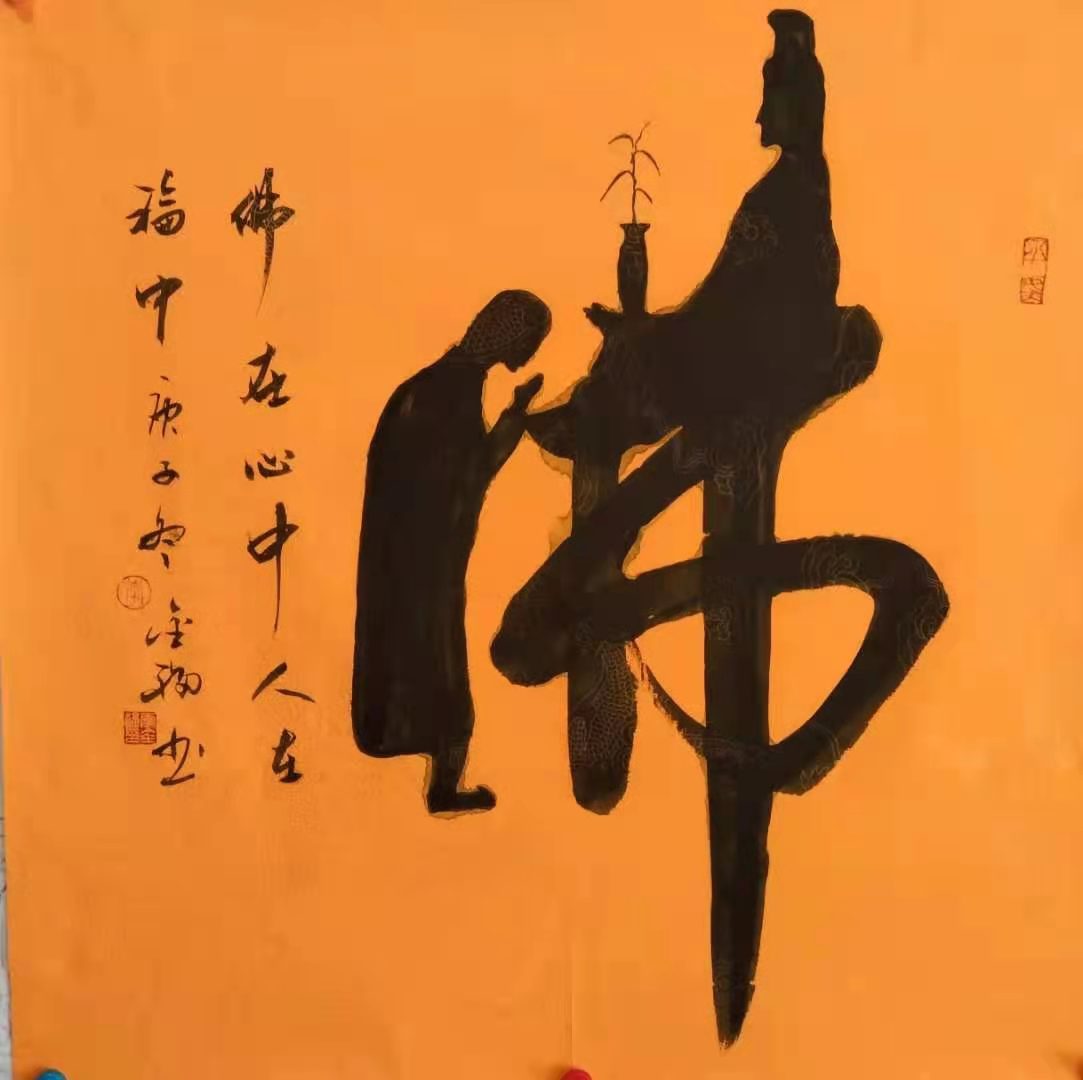 佛
佛在心中人在
福中庚子冬金书